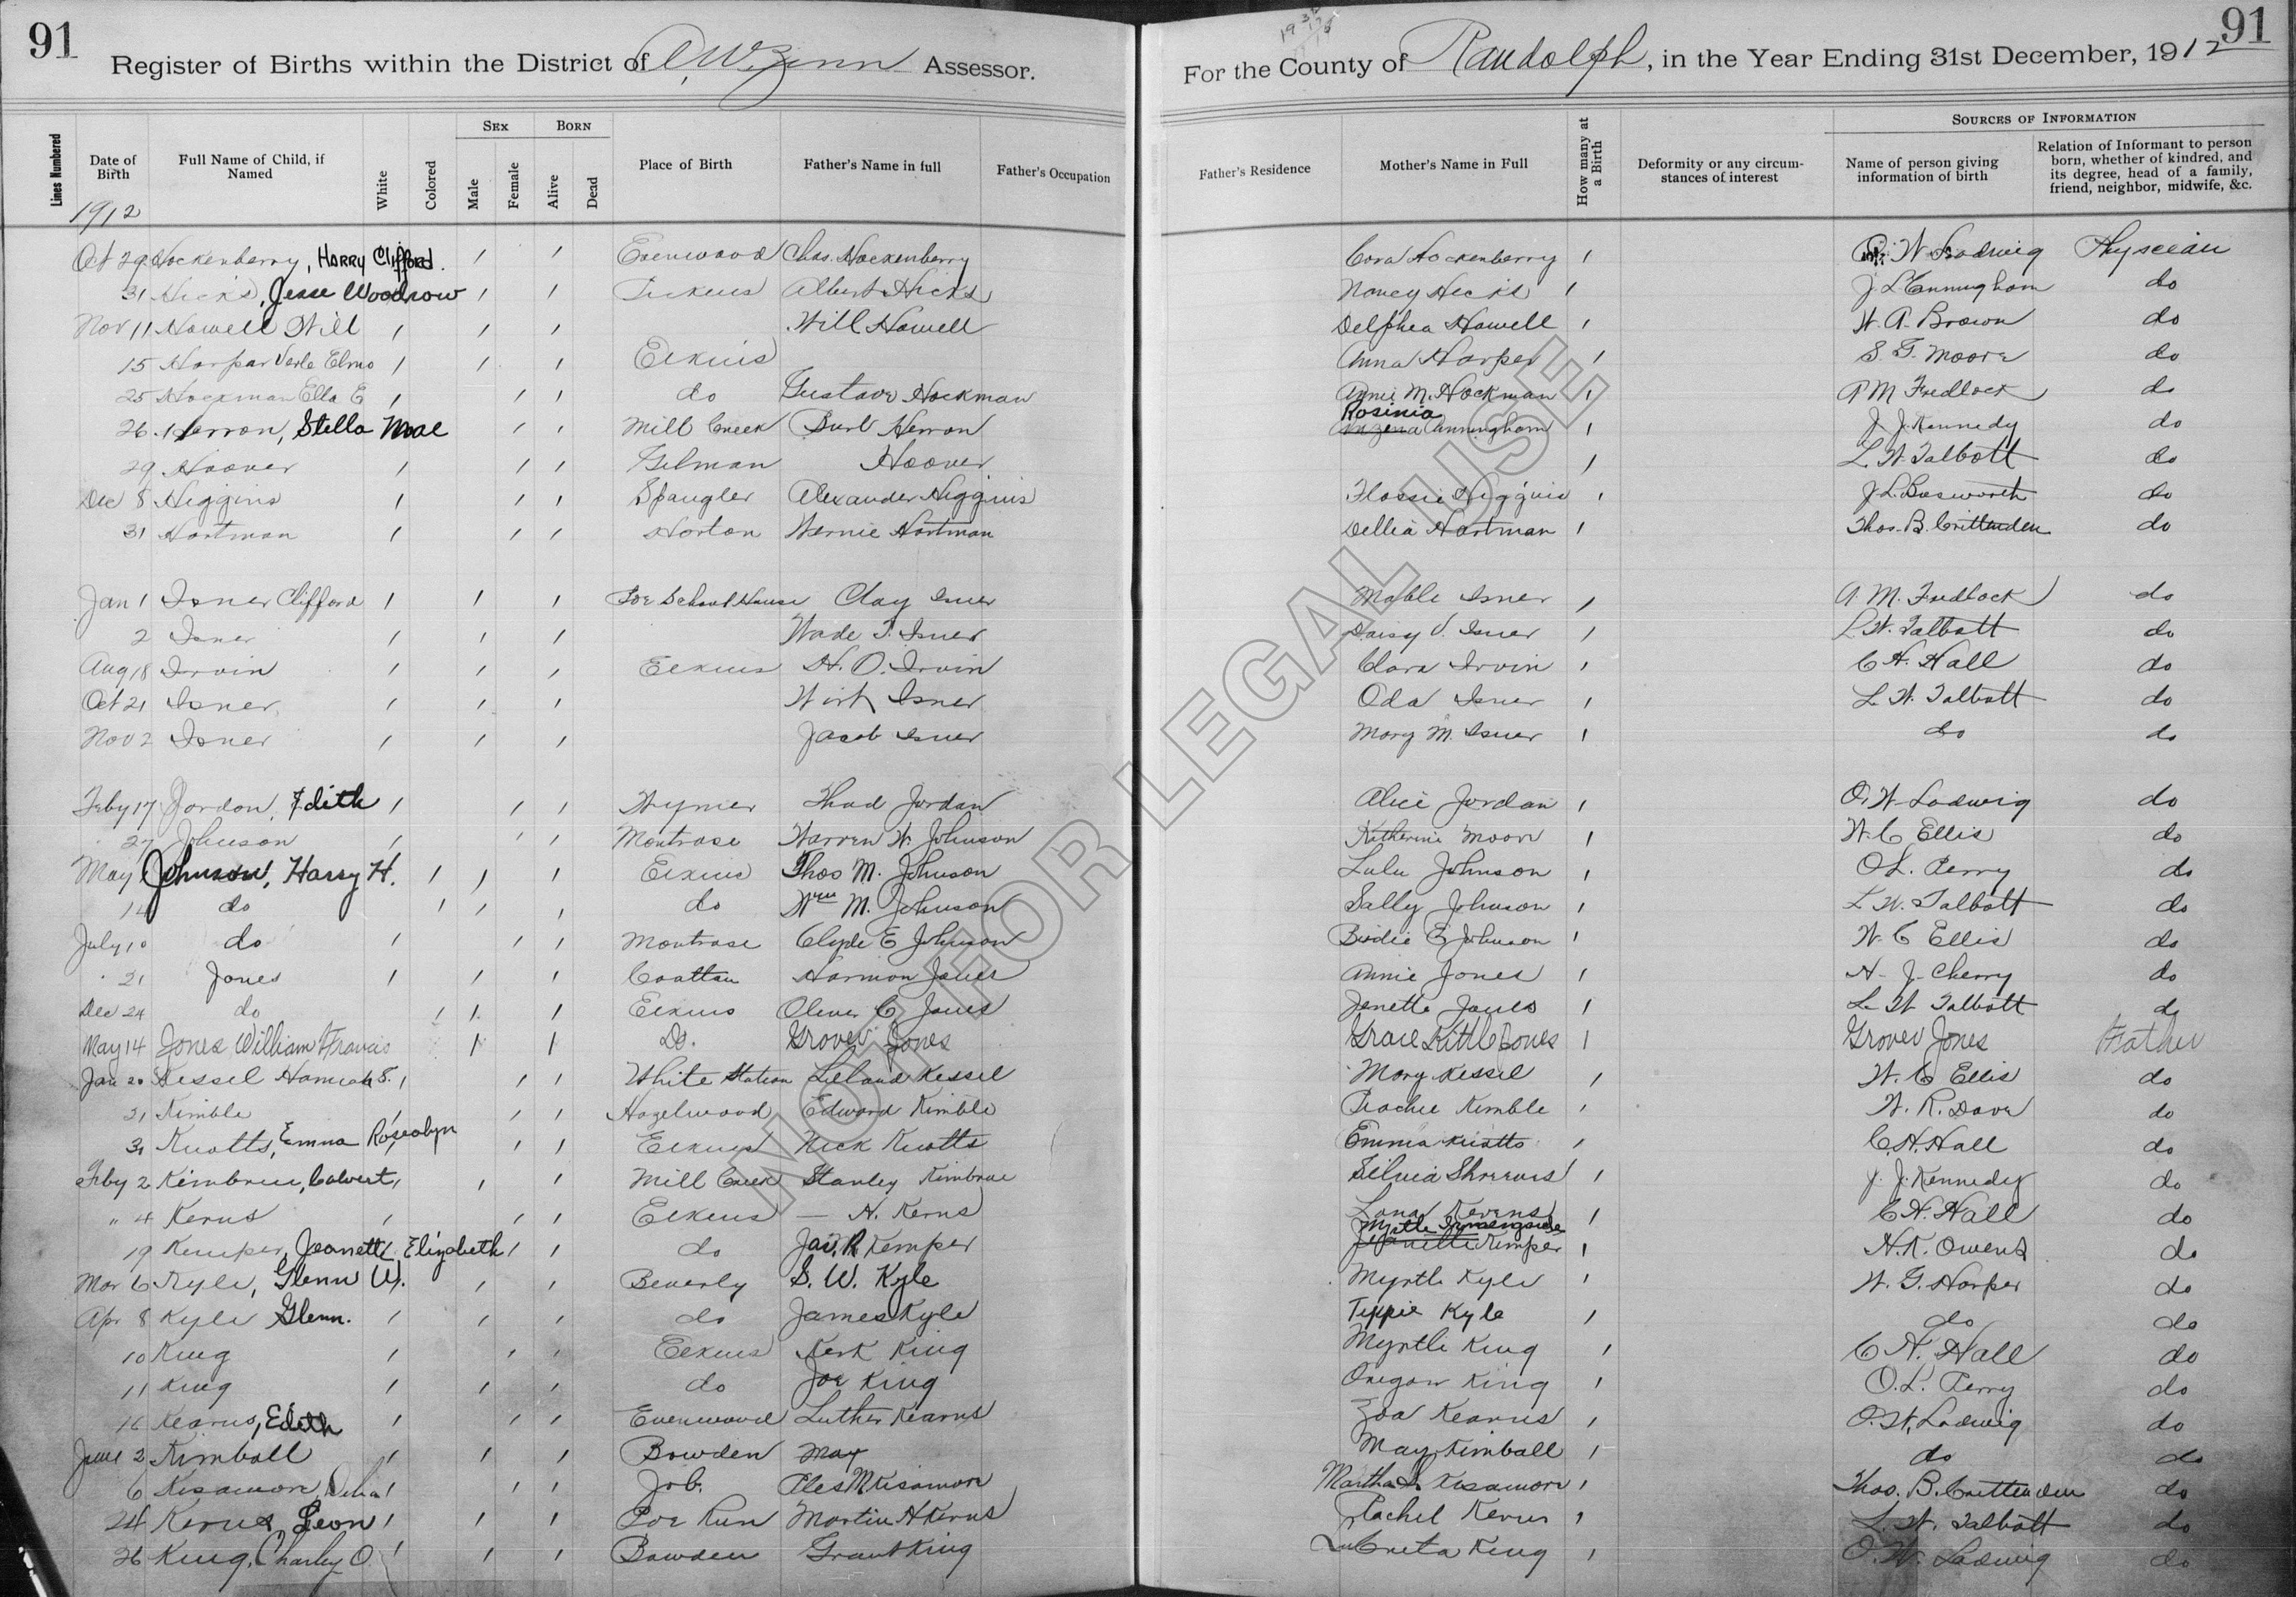 91
Register of Births within the District of O.W. Zinn Assessor.
For the County of Randolph, in the Year Ending 31st December, 1912
91
Lines Numbered
Date of Birth
Full Name of Child, if Named
White
Colored
SEX
Male
Female
BORN
Alive
Dead
Place of Birth
Father's Name in full
Father's Occupation
Father's Residence
Mother's Name in Full
How many at a Birth
Deformity or any circumstances of interest
SOURCES OF INFORMATION
Name of person giving information of birth
Relation of Informant to person born, whether of kindred, and its degree, head of a family, friend, neighbor, midwife, &c.
1912
Oct 29 Hockenberry, Harry Clifford. 1 1 Evenwood Chas. Hockenberry Cora Hockenberry 1 W Ladwig Physician
31 Hicks, Jesse Woodrow 1 1 Pickens Albert Hicks Nancy Hicks 1 J L Cunningham do
Nov 11 Howell Will 1 1 1 Will Howell Delphea Howell 1 W. A. Brown do
15 Harper Verle Elmo 1 1 1 Elkins Anna Harper 1 S. G. Moore do
25 Hockman Ella E 1 1 1 do Gustave Hockman Annie M. Hockman 1 A M Fredlock do
26 Herron, Stella Mae 1 1 Mill Creek Burl Herron Rosinia Cunningham 1 J. J. Kennedy do
29 Hoover 1 1 1 Gilman Hoover 1 L. W. Talbott do
Dec 8 Higgins 1 1 1 Spangler Alexander Higgins Flossie Higgins 1 J. L. Bosworth do
31 Hartman 1 1 1 Horton Wernie Hartman Dellia Hartman 1 Thos. B. Crittenden do
Jan 1 Isner Clifford 1 1 1 Poe School House Clay Isner Mable Isner 1 A. M. Fredlock do
2 Isner 1 1 1 Wade T. Isner Daisy V. Isner 1 L. W. Talbott do
Aug 18 Irvin 1 1 1 Elkins H. O. Irvin Clara Irvin 1 C H. Hall do
Oct 21 Isner 1 1 1 Wirt Isner Oda Isner 1 L. W. Talbott do
Nov 2 Isner 1 1 1 Jacob Isner Mary M. Isner 1 do do
Feby 17 Jordon, Edith 1 1 1 Wymer Thad Jordan Alice Jordan 1 O. W. Ladwig do
27 Johnson 1 1 1 Montrose Warren W. Johnson Katherine Moore 1 W. C Ellis do
May 1 Johnson, Harry H. 1 1 1 Elkins Thos M. Johnson Lulu Johnson 1 O L. Perry do
14 do 1 1 1 do Wm M. Johnson Sally Johnson 1 L. W. Talbott do
July 10 do 1 1 1 Montrose Clyde E Johnson Birdie E Johnson 1 W. C Ellis do
21 Jones 1 1 1 Coalton Harmon Jones Annie Jones 1 H. J. Cherry do
Dec 24 do 1 1 1 Elkins Oliver C. Jones Jenette Jones 1 L. W Talbott do
May 14 Jones William Francis 1 1 Do. Grover Jones Grace Kittle Jones 1 Grover Jones Father
Jan 20 Kessel Hannah S. 1 1 1 White Station Leland Kessel Mary Kessel 1 W. C Ellis do
21 Kimble 1 1 1 Hazelwood Edward Kimble Prachie Kimble 1 W. R. Dove do
31 Knotts, Emma Rosealyn 1 1 Elkins Nick Knotts Emma Knotts 1 C. H. Hall do
Feby 2 Kimbrue, Calvert 1 1 1 Mill Creek Stanley Kimbrue Silvia Shreeves 1 J. J. Kennedy do
" 4 Kerns 1 1 1 Elkins — H. Kerns Lona Kerens 1 C H. Hall do
19 Kemper, Jeanette Elizabeth 1 1 1 do Jas. R Kemper Myrtle Jeanette Kemper 1 H. K. Owens do
Mar 6 Kyle, Glenn W. 1 1 Beverly S. W. Kyle Myrtle Kyle 1 W. G. Harper do
Apr 8 Kyle Glenn. 1 1 1 do James Kyle Teppie Kyle 1 do do
10 King 1 1 1 Elkins Kent King Myrtle King 1 C H. Hall do
11 King 1 1 1 do Joe King Oregon King 1 O. L. Perry do
16 Kearns, Edith 1 1 1 Evenwood Luther Kearns Zoa Kearns 1 O. W. Ladwig do
June 2 Kimball 1 1 1 Bowden May May Kimball 1 do do
6 Kisamore Delia 1 1 1 Job. Ples M Kisamore Martha S. Kisamore 1 Thos. B. Crittenden do
24 Kerns Leon 1 1 1 Poe Run Martin H Kerns Rachel Kerns 1 L. W. Talbott do
26 King, Charley O. 1 1 1 Bowden Grant King LuCreta King 1 O. W. Ladwig do
NOT FOR LEGAL USE